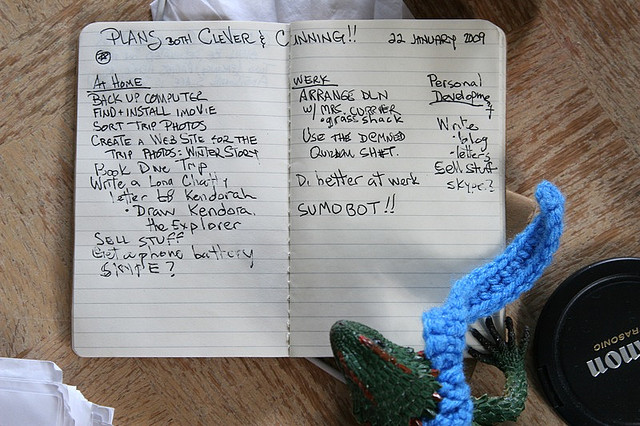 PLANS BOTH CLEVER & CUNNING!!
22 JANUARY 2009
At Home
BACK UP COMPUTER
FIND + INSTALL IMOVIE
SORT TRIP PHOTOS
CREATE A WEB SITE FOR THE
TRIP PHOTOS: WINTER STORY
Book Dive Trip
Write a Long Chatty
letter to Kendorah
• Draw Kendora,
the Explorer
SELL STUFF
Get a phone battery
SKYPE?
WERK
ARRANGE DLN
W/ MRS. CURRIER
• grass shack
USE THE DEMNED
SH*T.
Do better at work
SUMOBOT!!
Personal
Development
Write
• blog
• letters
Sell stuff
SKYPE?
RASONIC
non